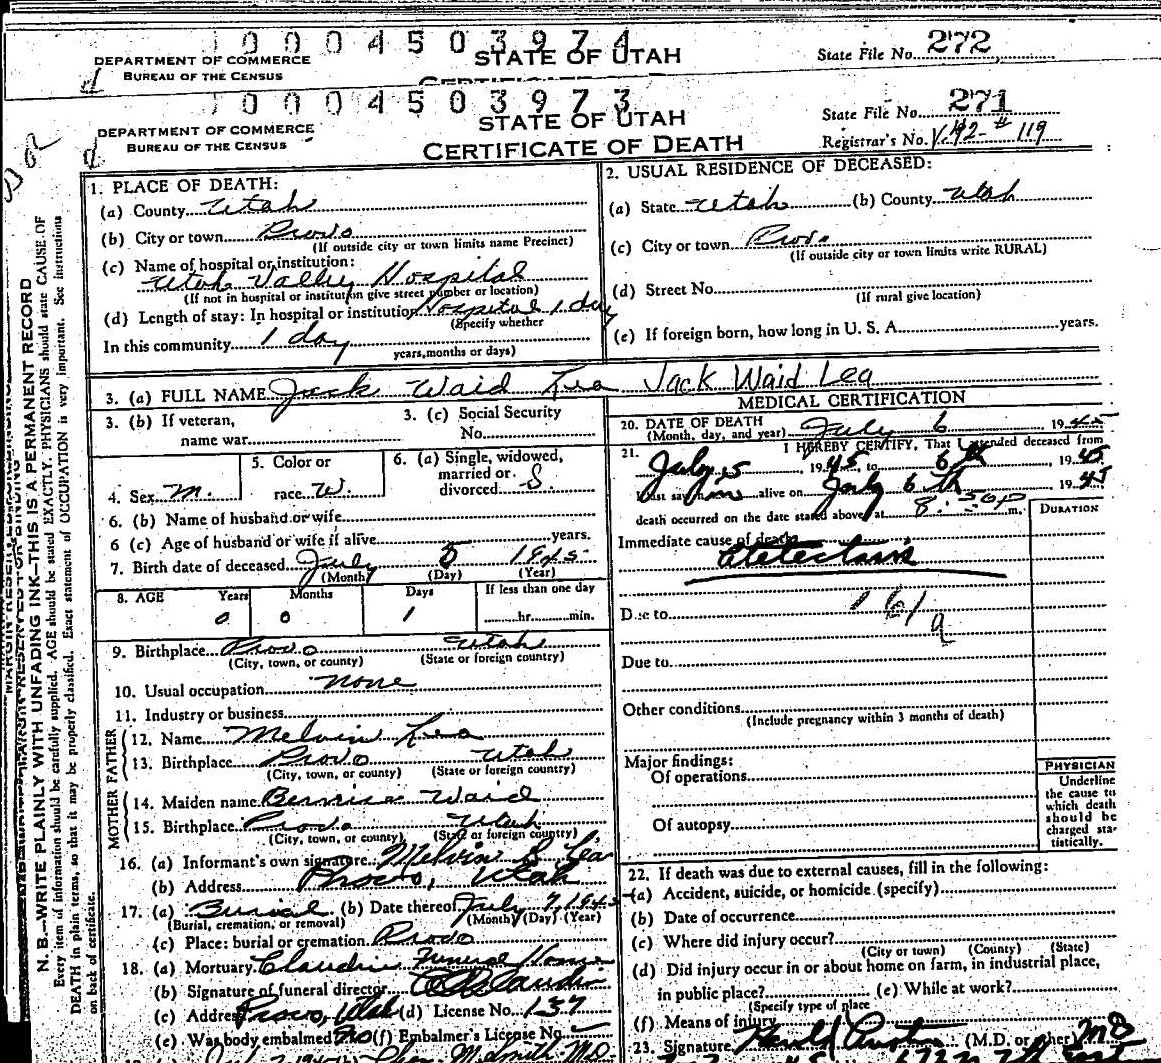 0 0 0 4 5 0 3 9 7 4
DEPARTMENT OF COMMERCE
BUREAU OF THE CENSUS
STATE OF UTAH
State File No. 272
0 0 0 4 5 0 3 9 7 3
DEPARTMENT OF COMMERCE
BUREAU OF THE CENSUS
STATE OF UTAH
CERTIFICATE OF DEATH
State File No. 271
Registrar's No. 119
N. B.—WRITE PLAINLY WITH UNFADING INK—THIS IS A PERMANENT RECORD
Every item of information should be carefully supplied. AGE should be stated EXACTLY. PHYSICIANS should state CAUSE OF
DEATH in plain terms, so that it may be properly classified. Exact statement of OCCUPATION is very important. See instructions
on back of certificate.
1. PLACE OF DEATH:
(a) County Utah
(b) City or town Provo
(If outside city or town limits name Precinct)
(c) Name of hospital or institution:
Utah Valley Hospital
(If not in hospital or institution give street number or location)
(d) Length of stay: In hospital or institution Hospital 1 day
(Specify whether
In this community 1 day
years, months or days)
2. USUAL RESIDENCE OF DECEASED:
(a) State Utah (b) County Utah
(c) City or town Provo
(If outside city or town limits write RURAL)
(d) Street No.
(If rural give location)
(e) If foreign born, how long in U. S. A. years.
3. (a) FULL NAME Jack Waid Lea Jack Waid Lea
3. (b) If veteran,
name war
3. (c) Social Security
No.
4. Sex M.
5. Color or
race W.
6. (a) Single, widowed,
married or
divorced S.
6. (b) Name of husband or wife
6 (c) Age of husband or wife if alive years.
7. Birth date of deceased July 5 1945
(Month) (Day) (Year)
8. AGE Years Months Days If less than one day
0 0 1 hr. min.
9. Birthplace Provo Utah
(City, town, or county) (State or foreign country)
10. Usual occupation none
11. Industry or business
FATHER
12. Name Melvin Lea
13. Birthplace Provo Utah
(City, town, or county) (State or foreign country)
MOTHER
14. Maiden name Bernice Waid
15. Birthplace Provo Utah
(City, town, or county) (State or foreign country)
16. (a) Informant's own signature Melvin S. Lea
(b) Address Provo, Utah
17. (a) Burial (b) Date thereof July 7, 1945
(Burial, cremation, or removal) (Month) (Day) (Year)
(c) Place: burial or cremation Provo
18. (a) Mortuary Claudin Funeral Home
(b) Signature of funeral director Claudin
(c) Address Provo, Utah (d) License No. 137
(e) Was body embalmed? No (f) Embalmer's License No.
MEDICAL CERTIFICATION
20. DATE OF DEATH
(Month, day, and year) July 6 1945
21. I HEREBY CERTIFY, That I attended deceased from
July 5, 1945, to 6th, 1945
last saw him alive on July 6th 1945
death occurred on the date stated above at 8:30 P m.
DURATION
Immediate cause of death
Atelectasis
Due to 161a
Due to
Other conditions
(Include pregnancy within 3 months of death)
Major findings:
Of operations
Of autopsy
PHYSICIAN
Underline
the cause to
which death
should be
charged sta-
tistically.
22. If death was due to external causes, fill in the following:
(a) Accident, suicide, or homicide (specify)
(b) Date of occurrence
(c) Where did injury occur?
(City or town) (County) (State)
(d) Did injury occur in or about home on farm, in industrial place,
in public place? (e) While at work?
(Specify type of place
(f) Means of injury
23. Signature (M.D. or other) MD